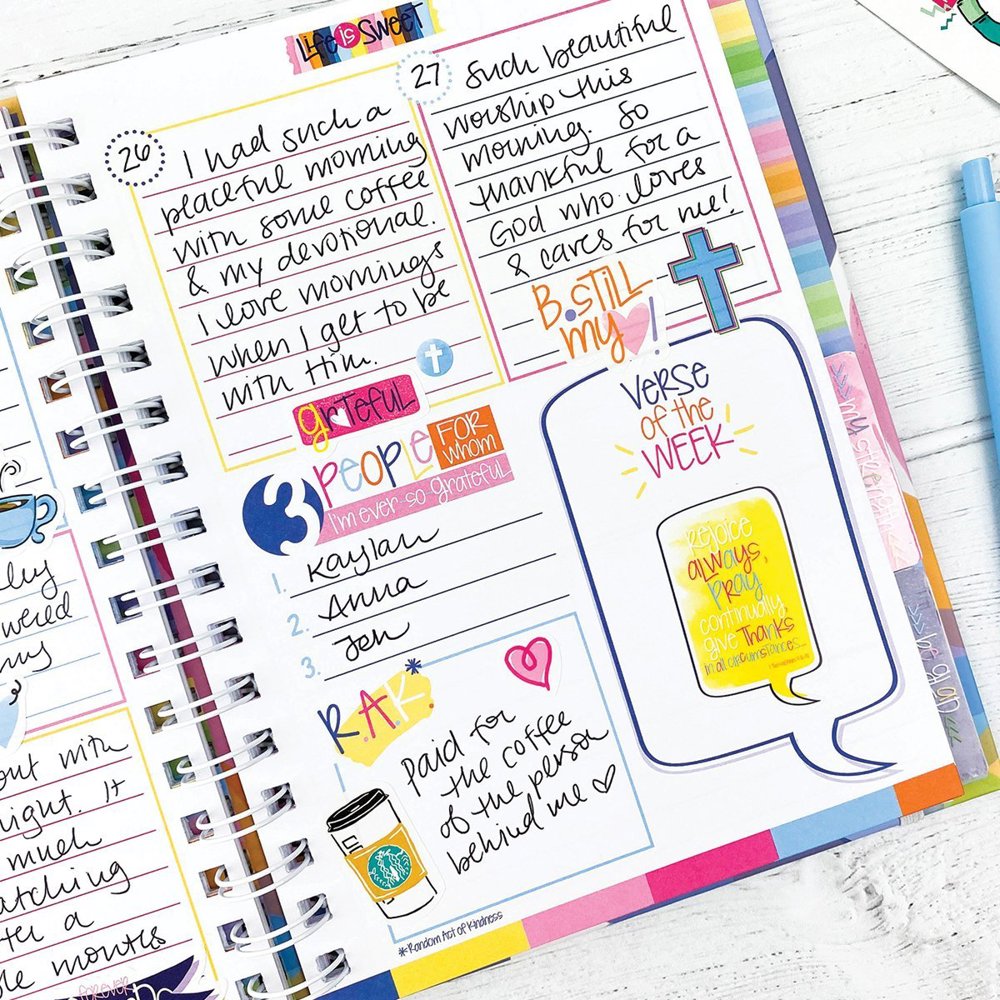 Life is SWEET
26
I had such a
peaceful morning
with some coffee
& my devotional.
I love mornings
when I get to be
with Him.
grateful
27
Such beautiful
worship this
morning. So
thankful for a
God who loves
& cares for me!
B. STILL
my !
3 PEOPLE FOR whom
I'm ever-so-grateful
1. Kaylan
2. Anna
3. Jen
R.A.K.*
Paid for
the coffee
of the person
behind me
*Random Act of Kindness
VERSE
of the
WEEK
Rejoice
always,
pray
continually,
give thanks
in all circumstances...
out with
much
after a
months
FOREVER